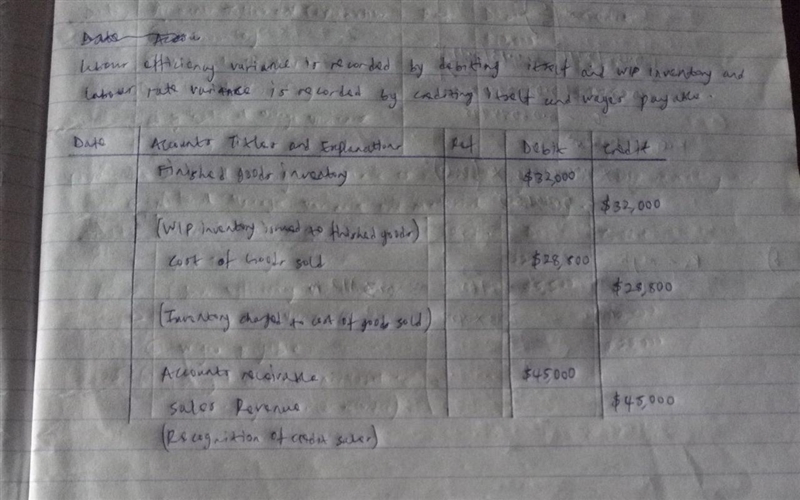 Date Acco
Labour efficiency variance is recorded by debiting itself and WIP inventory and
labour rate variance is recorded by crediting itself and wages payable.
Date Accounts Titles and Explanations Ref Debit Credit
Finished goods inventory $32,000
$32,000
(WIP inventory issued to finished goods)
Cost of Goods sold $28,800
$28,800
(Inventory charged to cost of goods sold)
Accounts receivable $45000
Sales Revenue $45,000
(Recognition of credit sales)